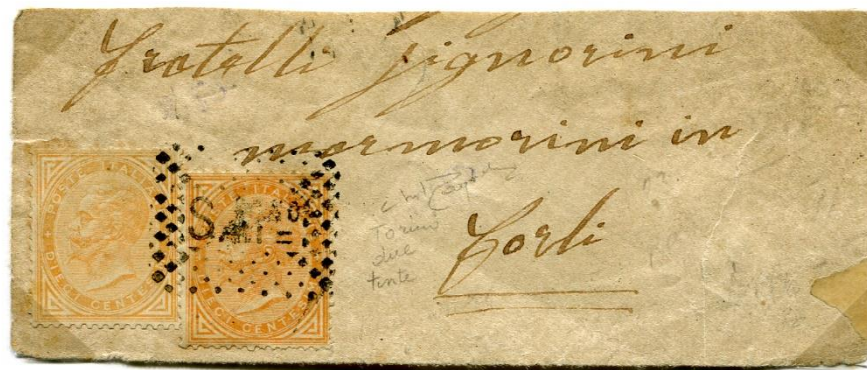 fratelli signorini
marmorini in
Forli
Torino
due
tinte
POSTE ITALIANE
DIECI CENTESIMI
POSTE ITALIANE
DIECI CENTESIMI